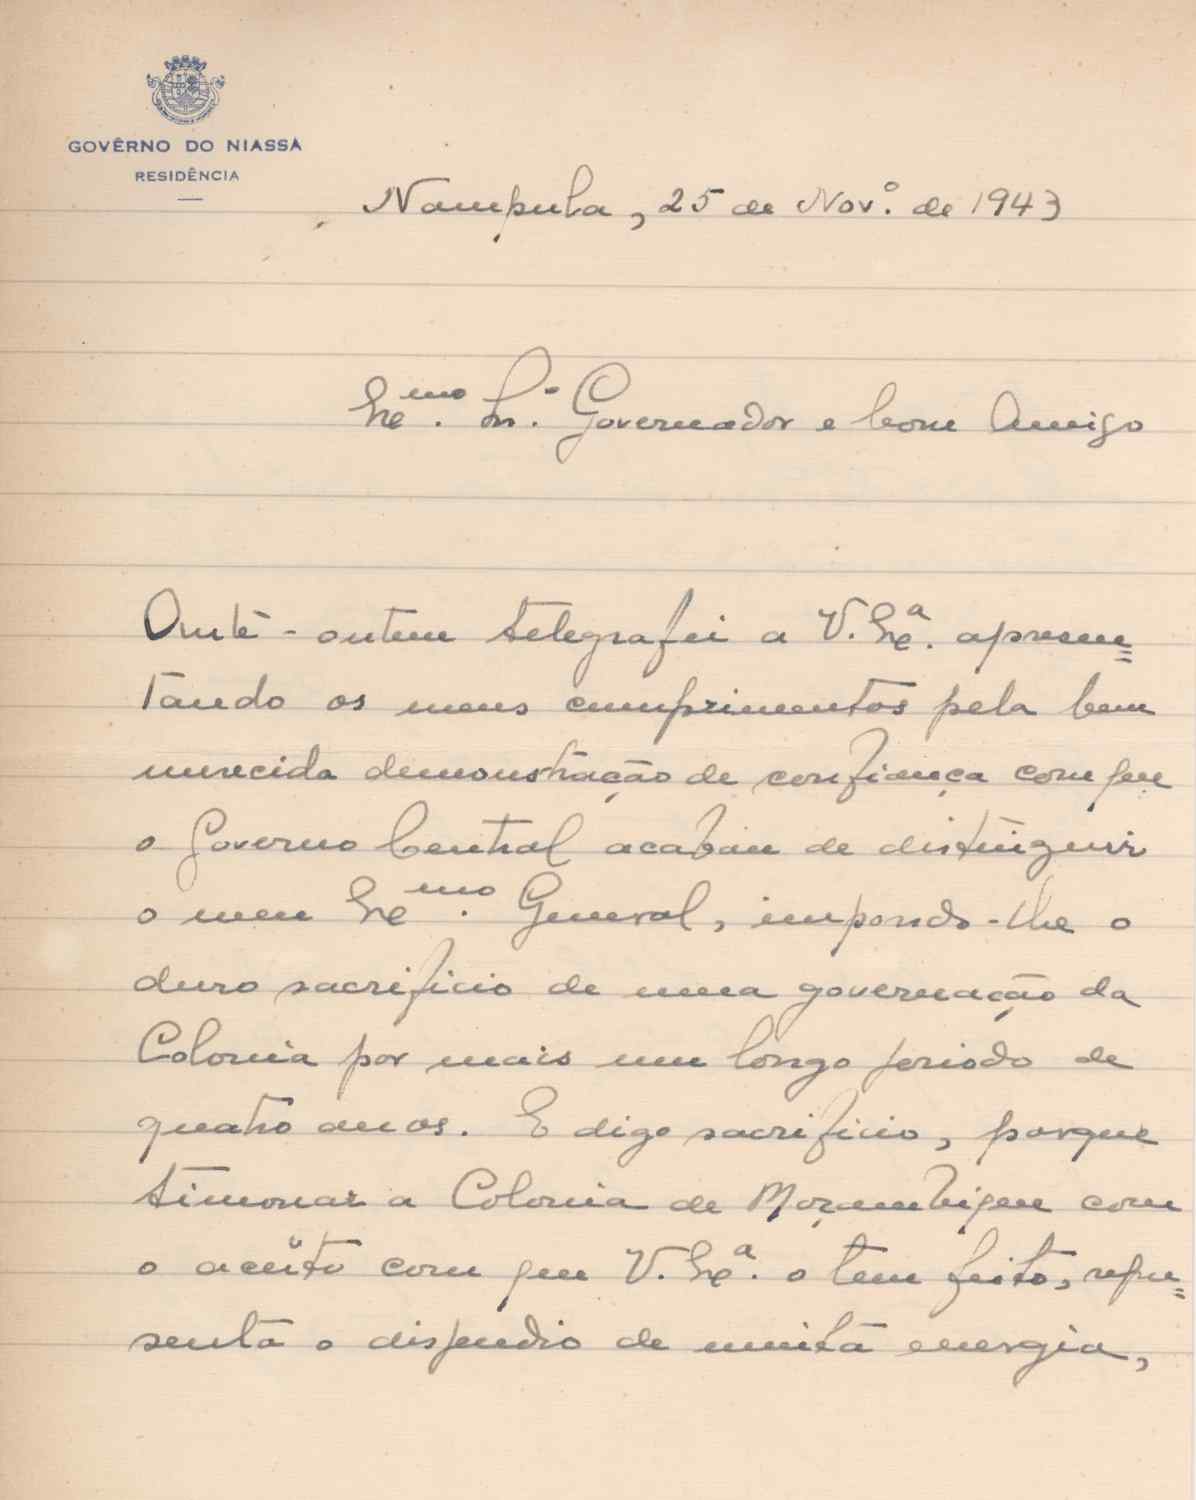 GOVÊRNO DO NIASSA
RESIDÊNCIA
Nampula, 25 de Nov.º de 1943
Exmo. Sr. Governador e bom Amigo
Ante-ontem telegrafei a V. Exª. apresen=
tando os meus cumprimentos pela bem
merecida demonstração de confiança com que
o Governo Central acabou de distinguir
o meu Exmo. General, impondo-lhe o
duro sacrificio de uma governação da
Colonia por mais um longo periodo de
quatro anos. E digo sacrificio, porque
timonar a Colonia de Moçambique com
o acêrto com que V. Exª. o tem feito, repre=
senta o dispendio de muita energia,